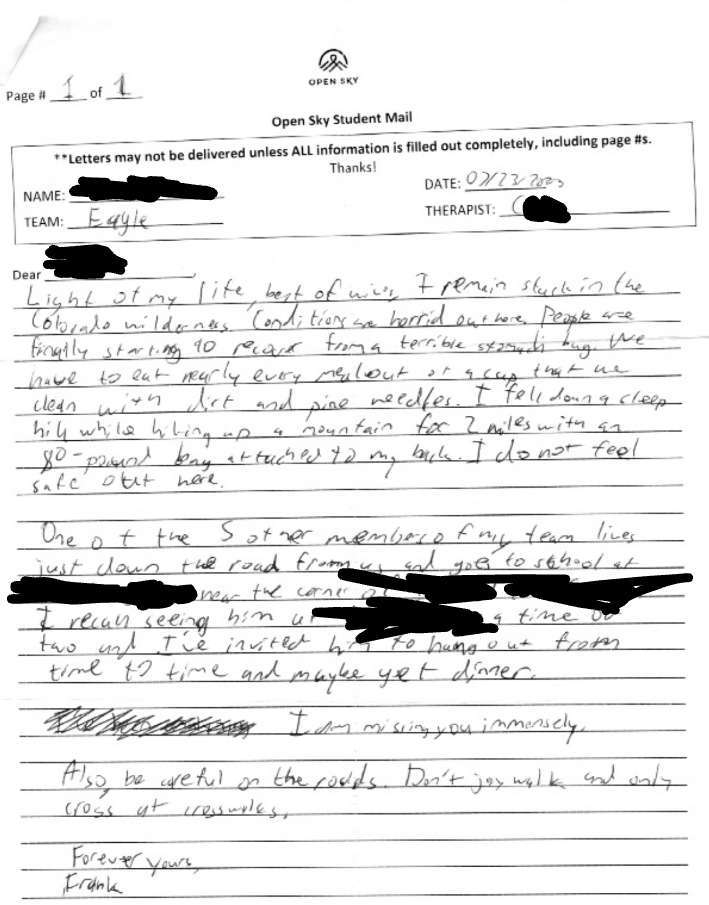 OPEN SKY
Page # 1 of 1
Open Sky Student Mail
**Letters may not be delivered unless ALL information is filled out completely, including page #s.
Thanks!
NAME:
DATE: 07/23/2023
TEAM: Eagle
THERAPIST: C
Dear
Light of my life, best of wives, I remain stuck in the
Colorado wilderness. Conditions are horrid out here. People are
finally starting to recover from a terrible stomach bug. We
have to eat nearly every meal out of a cup that we
clean with dirt and pine needles. I fell down a steep
hill while hiking up a mountain for 2 miles with an
80-pound bag attached to my back. I do not feel
safe out here.
One of the 5 other members of my team lives
just down the road from us and goes to school at
near the corner of
I recall seeing him at a time or
two and I've invited him to hang out from
time to time and maybe get dinner.
I am missing you immensely.
Also, be careful on the roads. Don't jaywalk and only
cross at crosswalks.
Forever yours,
Frank